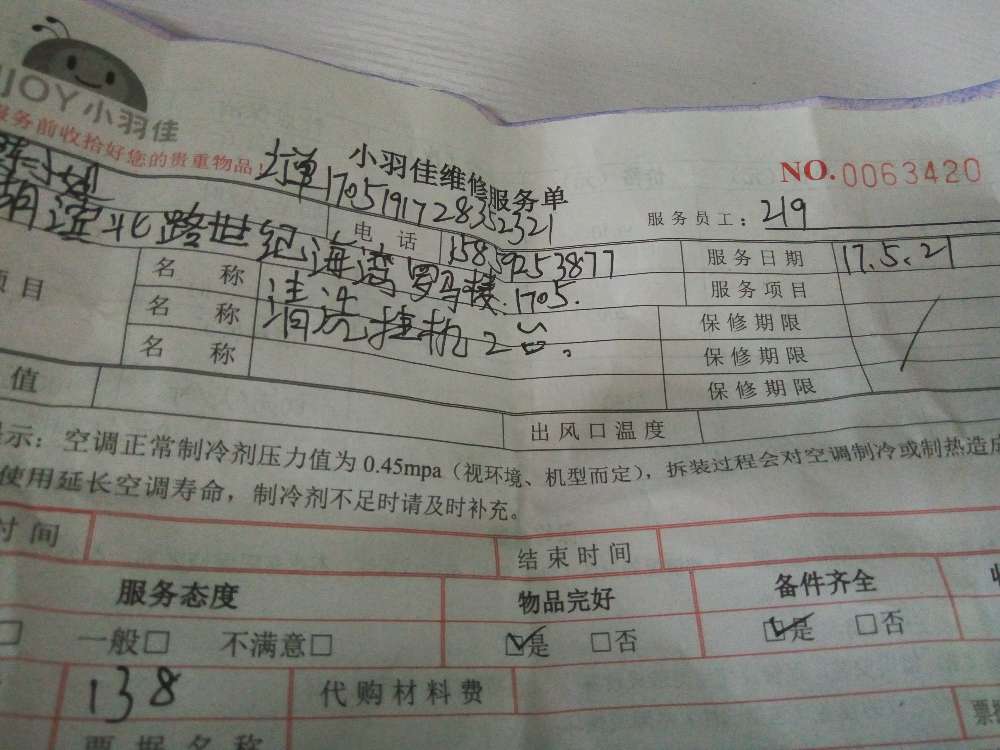 JOY小羽佳
服务前收拾好您的贵重物品！
小羽佳维修服务单
NO.0063420
订单1705191728352321
服务员工：219
电 话 15859253877
服务日期 17.5.21
湖滨北路世纪海湾罗马楼1705.
服务项目
项目
名 称 清洗挂机2台.
保修期限
名 称
保修期限
名 称
保修期限
值
出风口温度
示：空调正常制冷剂压力值为0.45mpa（视环境、机型而定），拆装过程会对空调制冷或制热造成
使用延长空调寿命，制冷剂不足时请及时补充。
时间
结束时间
服务态度 物品完好 备件齐全
□ 一般□ 不满意□ ☑是 □否 ☑是 □否
138 代购材料费
票据名称